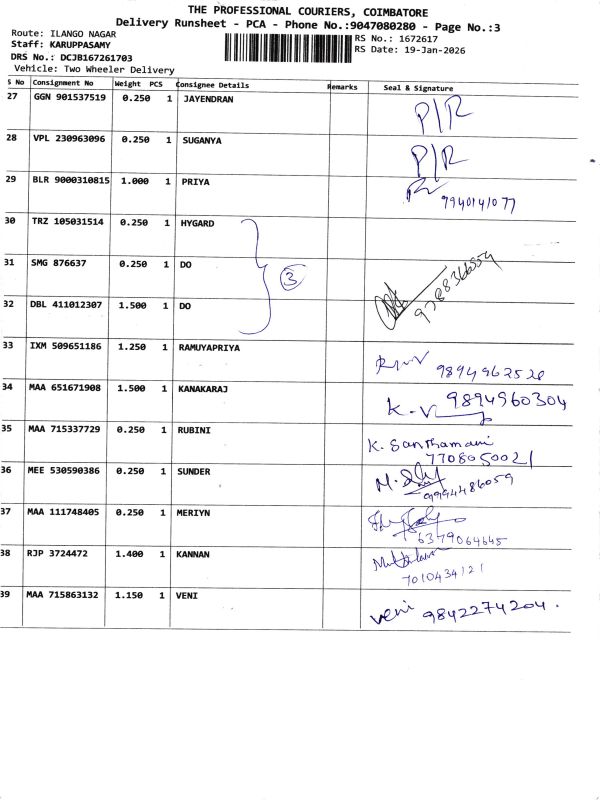 THE PROFESSIONAL COURIERS, COIMBATORE
Delivery Runsheet - PCA - Phone No.:9047080280 - Page No.:3
Route: ILANGO NAGAR
Staff: KARUPPASAMY
DRS No.: DCJB167261703
Vehicle: Two Wheeler Delivery
RS No.: 1672617
RS Date: 19-Jan-2026
S No Consignment No Weight PCS Consignee Details Remarks Seal & Signature
27 GGN 901537519 0.250 1 JAYENDRAN P/R
28 VPL 230963096 0.250 1 SUGANYA P/R
29 BLR 9000310815 1.000 1 PRIYA 9940141077
30 TRZ 105031514 0.250 1 HYGARD
31 SMG 876637 0.250 1 DO 3
32 DBL 411012307 1.500 1 DO
33 IXM 509651186 1.250 1 RAMUYAPRIYA 9894962528
34 MAA 651671908 1.500 1 KANAKARAJ K.V 9894960304
35 MAA 715337729 0.250 1 RUBINI K. Santhamani
7708050021
36 MEE 530590386 0.250 1 SUNDER 9994486059
37 MAA 111748405 0.250 1 MERIYN 6379064645
38 RJP 3724472 1.400 1 KANNAN 7010434121
39 MAA 715863132 1.150 1 VENI veni 9842274204.